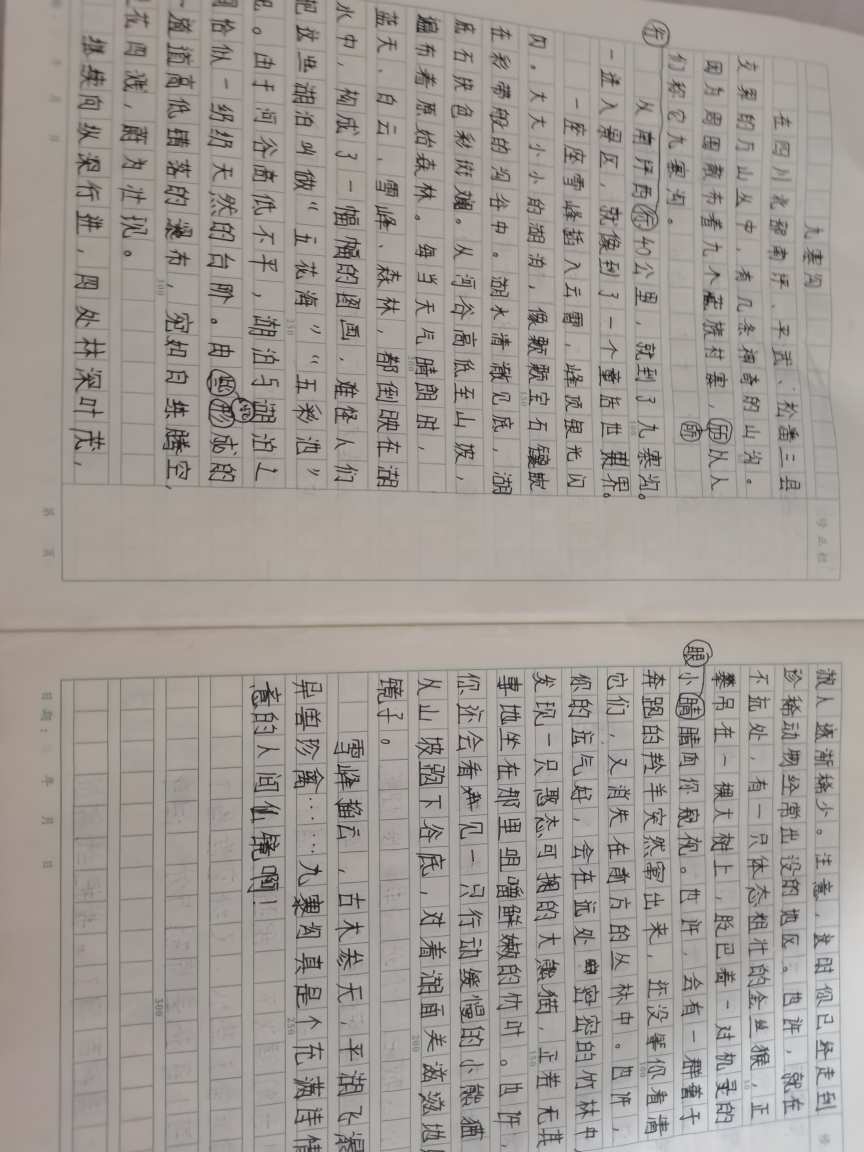 九寨沟
在四川北部南坪、平武、松番三县
交界的万山丛中，有几条神奇的山沟。
因为周围散布着九个藏族村寨，所以人
们称它九寨沟。
从南坪西行40公里，就到了九寨沟。
一进入景区，就像到了一个童话世界。
一座座雪峰插入云霄，峰顶银光闪
闪。大大小小的湖泊，像颗颗宝石镶嵌
在彩带般的沟谷中。湖水清澈见底，湖
底石块色彩斑斓。从河谷高低至山坡，
遍布着原始森林。每当天气晴朗时，
蓝天、白云、雪峰、森林，都倒映在湖
水中，构成了一幅幅的图画，难怪人们
把这些湖泊叫做“五花海”“五彩池”
呢。由于河谷高低不平，湖泊与湖泊之
间恰似一级级天然的台阶。由此形成的
一道道高低错落的瀑布，宛如白练腾空，
花四溅，蔚为壮观。
继续向纵深行进，四处林深叶茂，
第 页
游人逐渐稀少。注意，这时你已经走到
珍稀动物经常出没的地区。也许，就在
不远处，有一只体态粗壮的金丝猴，正
攀吊在一棵大树上，眨巴着一对机灵的
小眼睛向你窥视。也许，会有一群善于
奔跑的羚羊突然窜出来，还没等你看清
它们，又消失在前方的丛林中。也许，
你的运气好，会在远处密密的竹林中，
发现一只憨态可掬的大熊猫，正若无其
事地坐在那里咀嚼鲜嫩的竹叶。也许，
你还会看见一只行动缓慢的小熊猫
从山坡跑下谷底，对着湖面美滋滋地
镜子。
雪峰插云，古木参天；平湖飞瀑
异兽珍禽……九寨沟真是个充满诗情
意的人间仙镜啊！
日期： 年 月 日